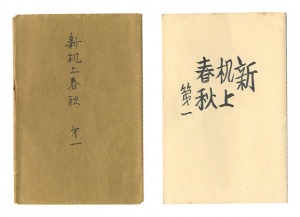 新机上春秋 第一
新
机上
春秋
第一